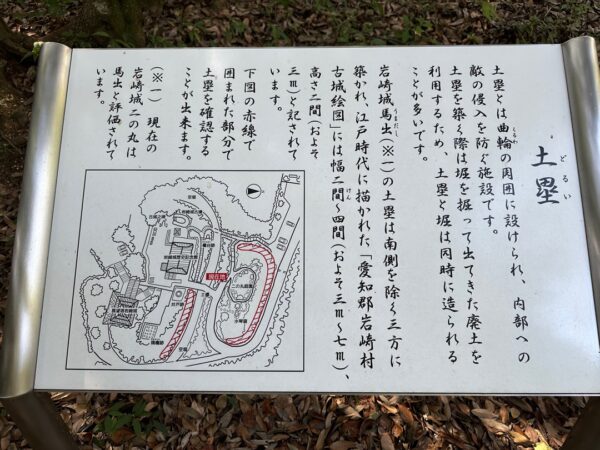 土塁
どるい
土塁とは曲輪の周囲に設けられ、内部への
くるわ
敵の侵入を防ぐ施設です。
土塁を築く際は堀を掘って出てきた廃土を
利用するため、土塁と堀は同時に造られる
ことが多いです。
岩崎城馬出（※一）の土塁は南側を除く三方に
うまだし
築かれ、江戸時代に描かれた「愛知郡岩崎村
古城絵図」には幅二間～四間（およそ三m～七m）、
けん
高さ二間（およそ
三m）と記されて
います。
下図の赤線で
囲まれた部分で
土塁を確認する
ことが出来ます。
（※一） 現在の
岩崎城二の丸は
馬出と評価されて
います。
現在地
二の丸庭園
空堀
土橋